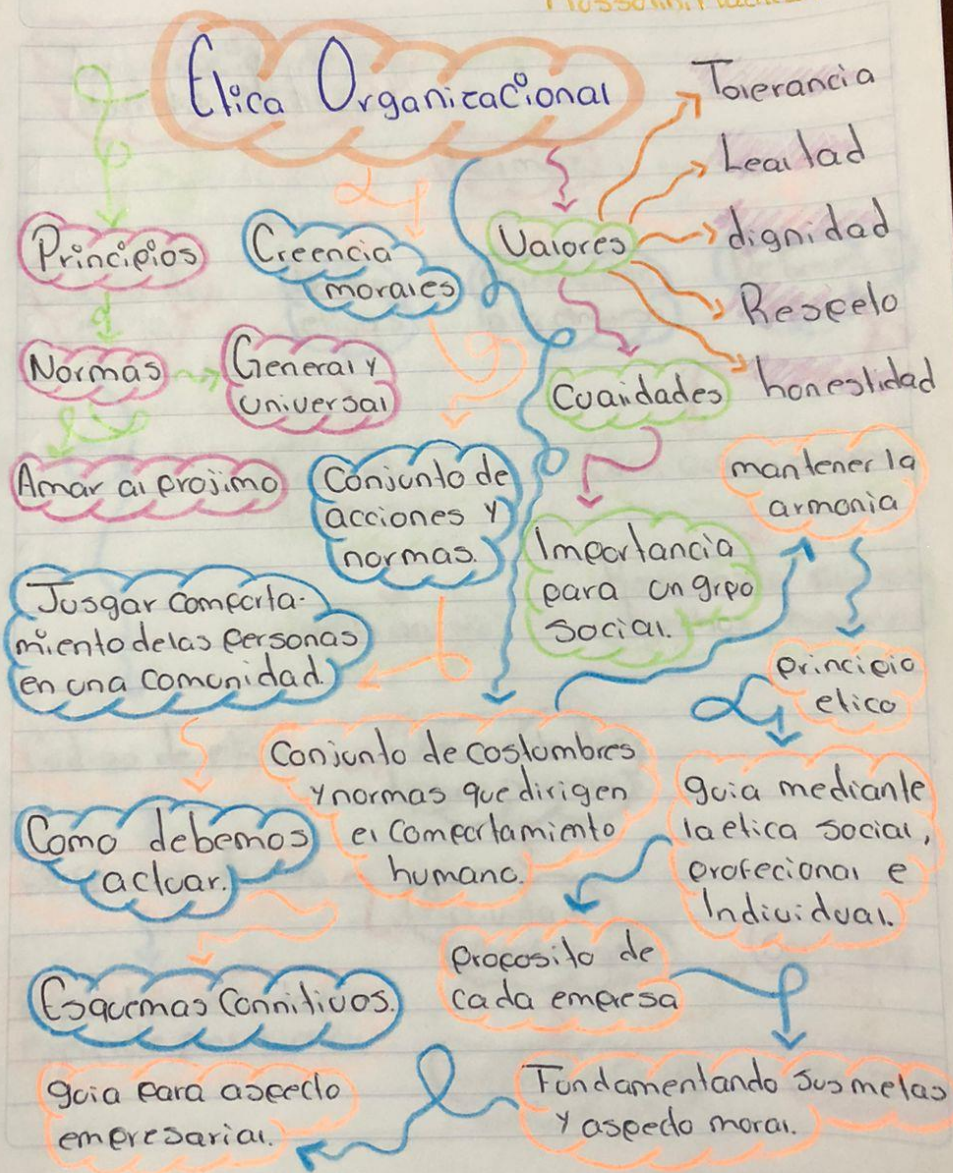 Etica Organizacional
Tolerancia
Lealtad
dignidad
Respeto
honestidad
Principios
Creencia
morales
Valores
Normas
General y
universal
Cualidades
Amar al projimo
Conjunto de
acciones y
normas.
mantener la
armonia
Importancia
para un grpo
social.
Jusgar comporta-
miento de las personas
en una comunidad.
principio
etico
Conjunto de costumbres
y normas que dirigen
el comportamiento
humano.
guia mediante
la etica social,
profecional e
Individual.
Como debemos
actuar.
proposito de
cada empresa
Esquemas Connitivos.
Fundamentando sus metas
y aspecto moral.
guia para aspecto
empresarial.